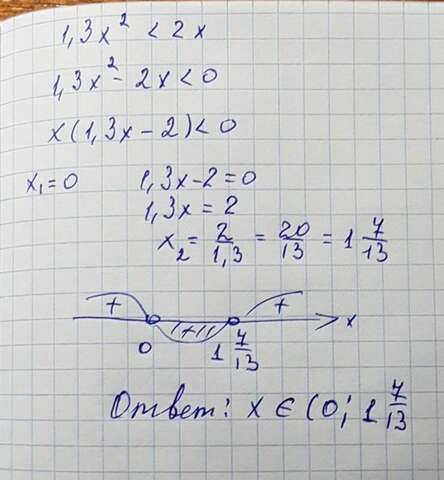 1,3x² < 2x
1,3x² - 2x < 0
x(1,3x - 2) < 0
x₁ = 0 1,3x - 2 = 0
1,3x = 2
x₂ = 2/1,3 = 20/13 = 1 7/13
+ + x
0 1 7/13
Ответ: x ∈ (0; 1 7/13